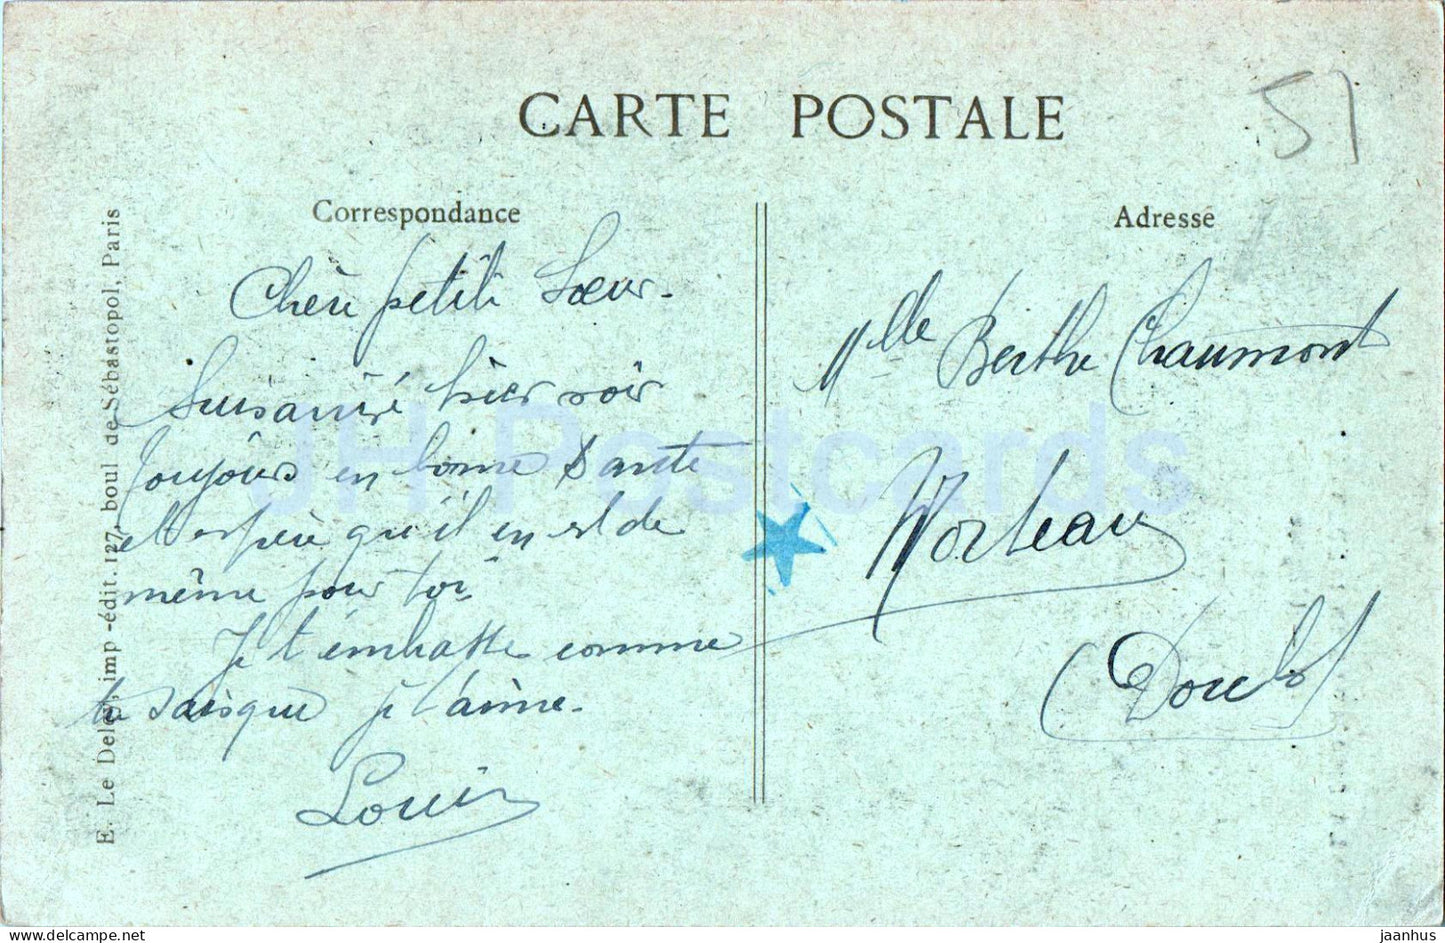 CARTE POSTALE
51
Correspondance
Adresse
Chère petite Sœur.
Suis arrivé hier soir
Toujours en bonne Santé
et espère qu'il en est de
même pour toi
Je t'embrasse comme
tu sais que je t'aime.
Louis
Mlle Berthe Chaumont
Morteau
(Doubs)
E. Le Deley, imp-édit. 127, boul de Sébastopol, Paris
JH Postcards
www.delcampe.net
jaanhus